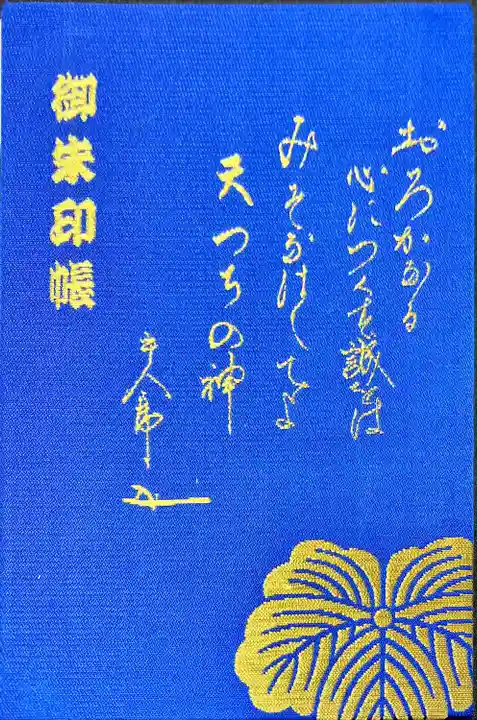 おろかなる
心につくす誠をは
みそなはしてよ
天つちの神
半八郎
御朱印帳